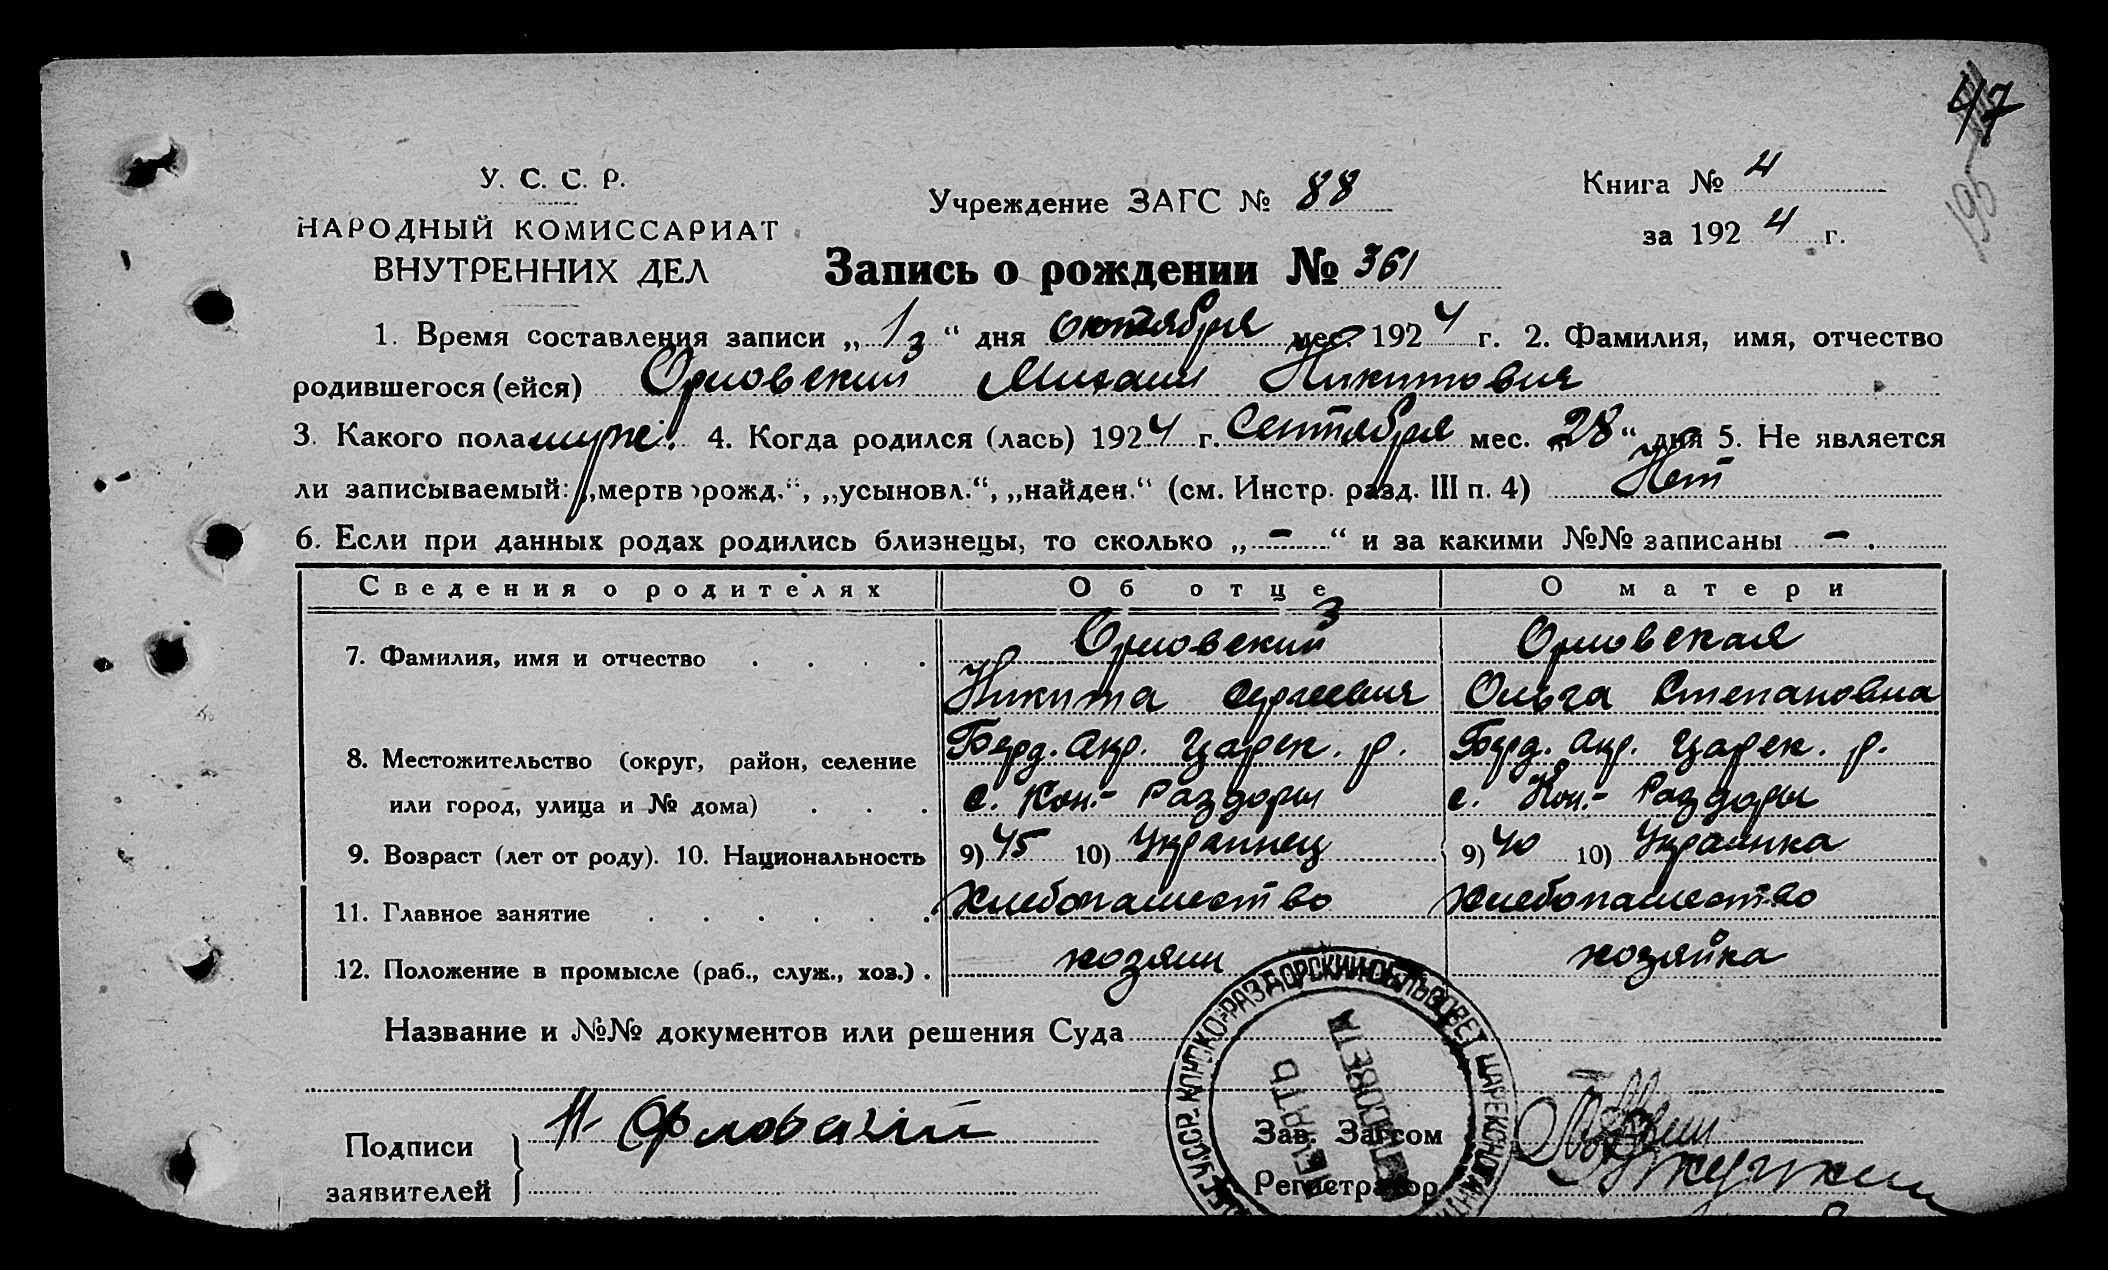 47
195
У. С. С. Р.
НАРОДНЫЙ КОМИССАРИАТ
ВНУТРЕННИХ ДЕЛ
Учреждение ЗАГС № 88
Книга № 4
за 1924 г.
Запись о рождении № 361
1. Время составления записи „13“ дня октября мес. 1924 г. 2. Фамилия, имя, отчество
родившегося (ейся) Орловский Михаил Никитович
3. Какого пола муж. 4. Когда родился (лась) 1924 г. Сентября мес. „28“ дня 5. Не является
ли записываемый: „мертворожд.“, „усыновл.“, „найден.“ (см. Инстр. разд. III п. 4) Нет
6. Если при данных родах родились близнецы, то сколько „ - “ и за какими №№ записаны - .
Сведения о родителях Об отце О матери
7. Фамилия, имя и отчество . . . . Орловский Орловская
Никита Сергеевич Ольга Степановна
8. Местожительство (округ, район, селение Берд. окр. Царек. р. Берд. окр. Царек. р.
или город, улица и № дома) . . . с. Кон.- Раздоры с. Кон.- Раздоры
9. Возраст (лет от роду). 10. Национальность 9) 45 10) Украинец 9) 40 10) Украинка
11. Главное занятие . . . . . . Хлебопашество Хлебопашество
12. Положение в промысле (раб., служ., хоз.) . хозяин хозяйка
Название и №№ документов или решения Суда
УССР. КОНСКО-РАЗДОРСКИЙ СЕЛЬСОВЕТ ЦАРЕКОНСТАНТИ
ПЕЧАТЬ
СЕЛЬСОВЕТА
Подписи
заявителей
Н. Орловский
Зав. Загсом
Регистратор